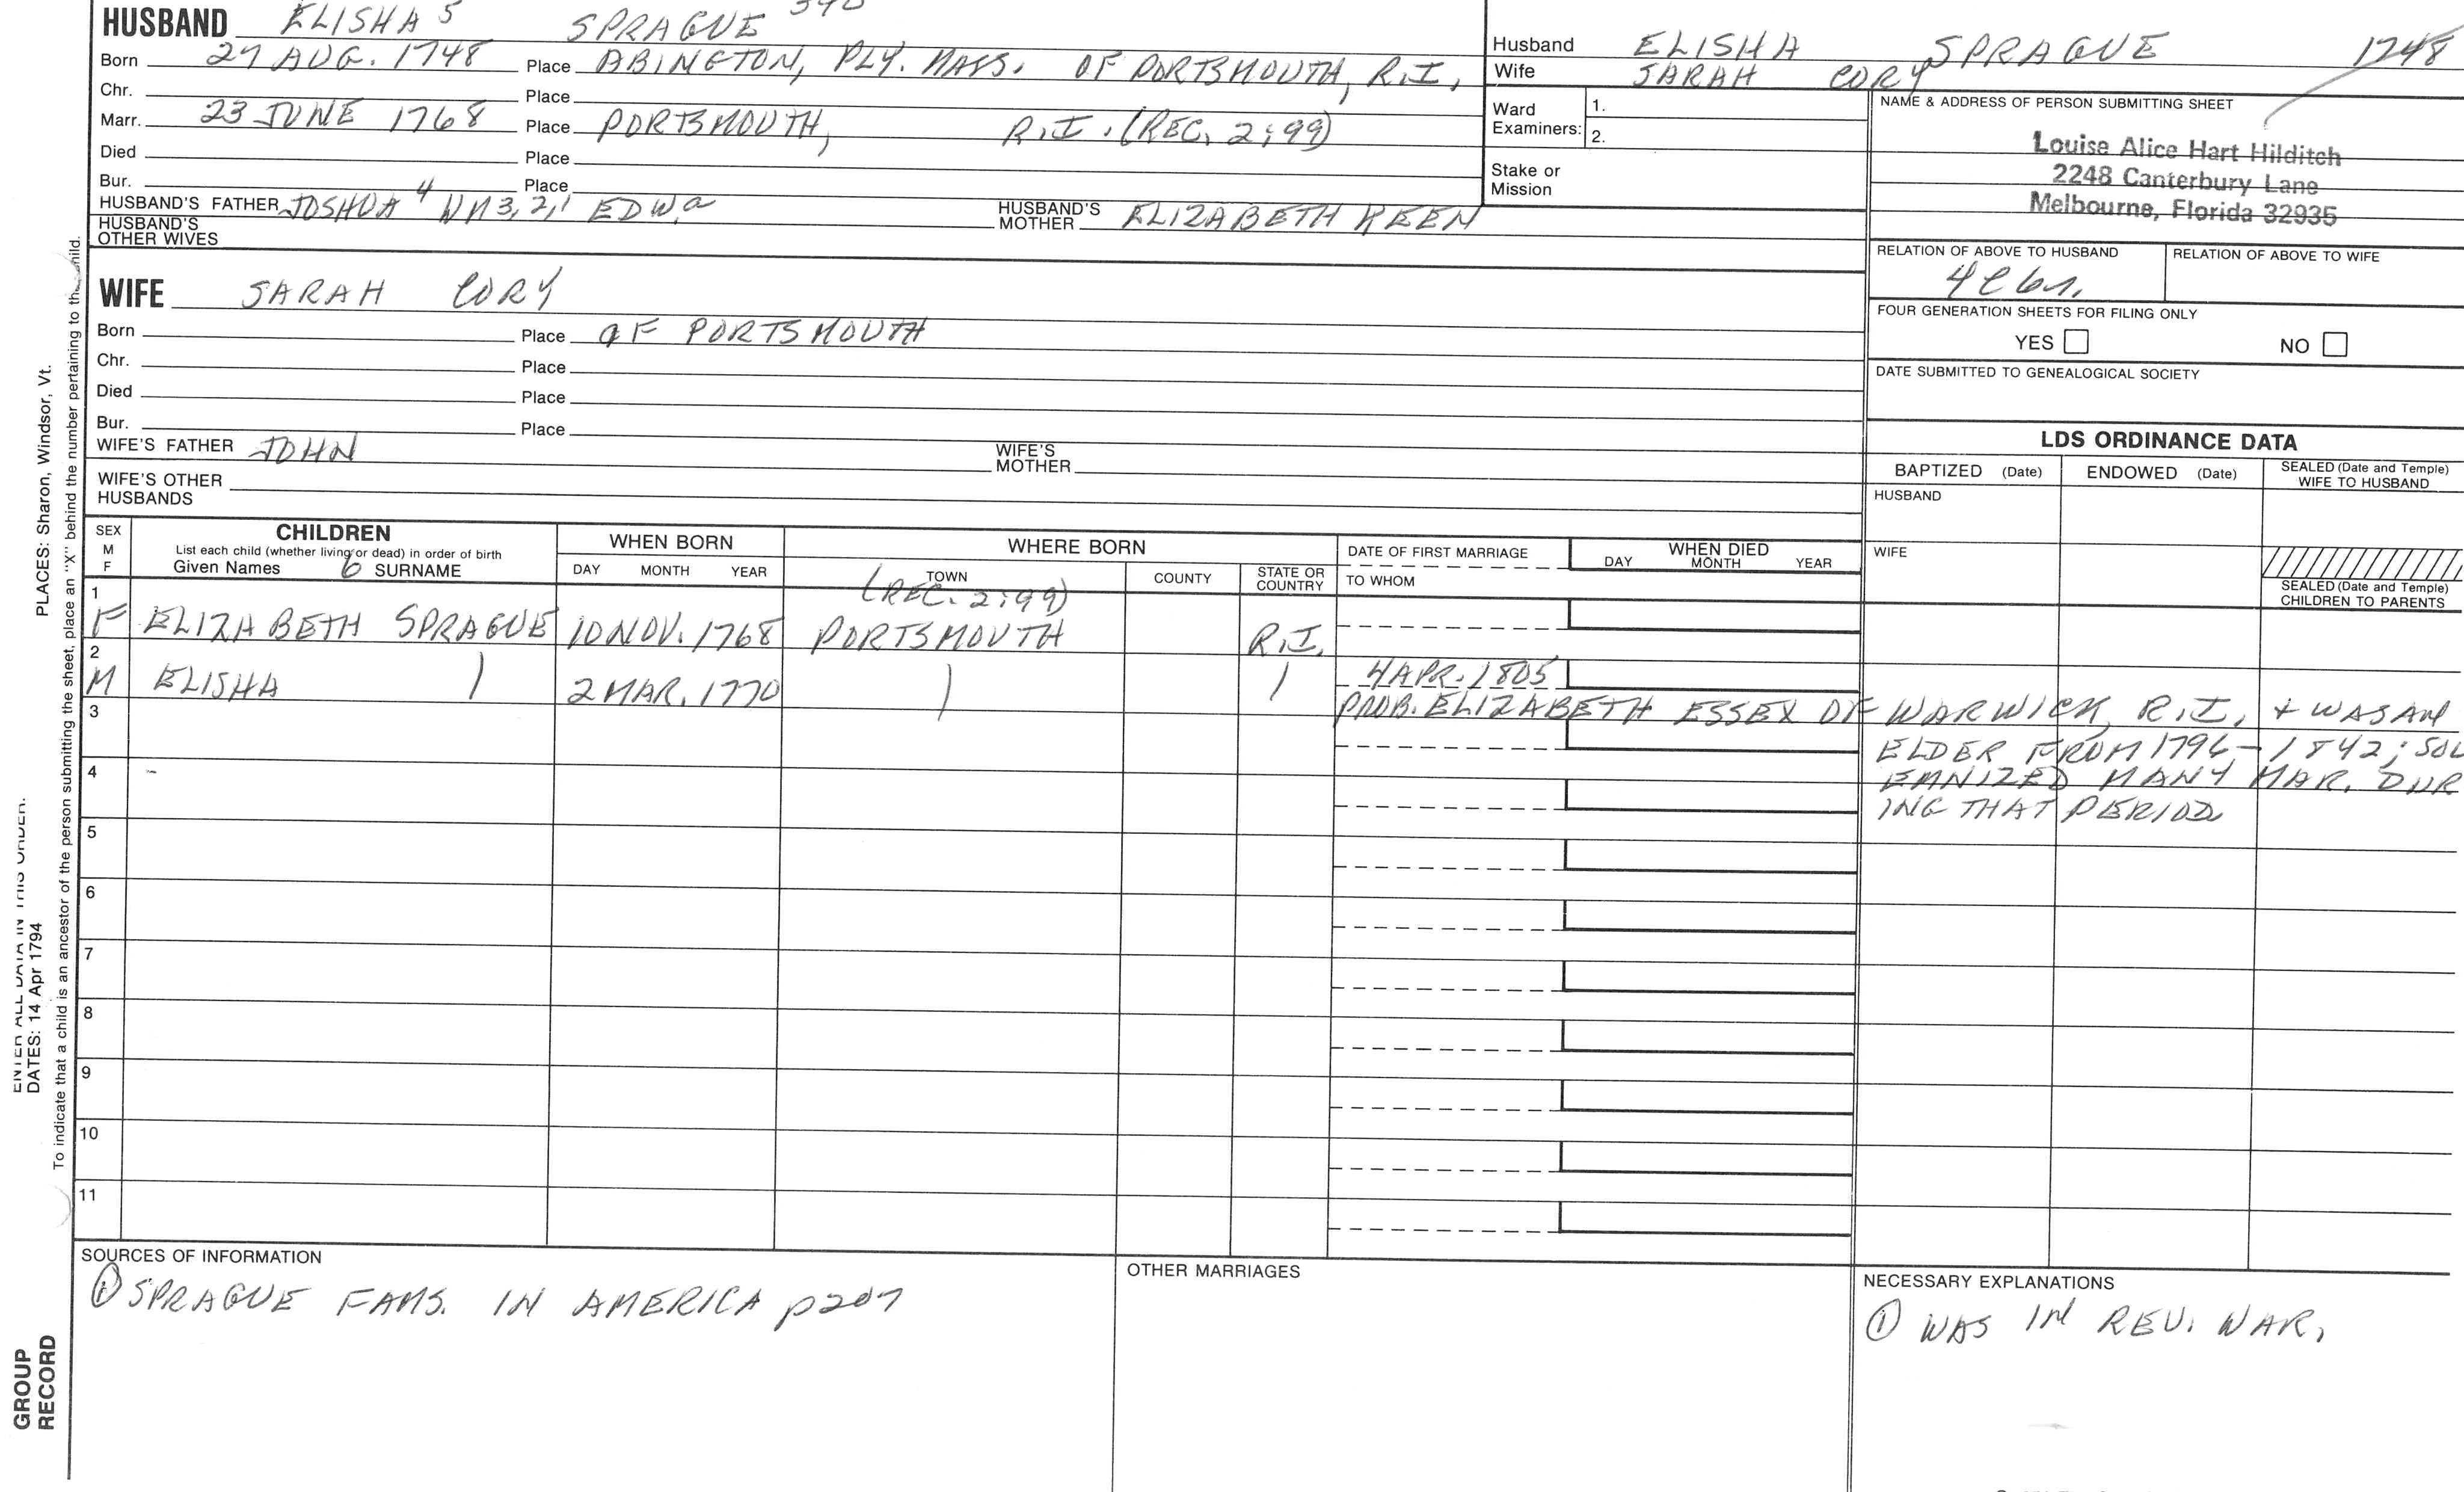 HUSBAND ELISHA 5 SPRAGUE
Born 27 AUG. 1748 Place ABINGTON, PLY. MASS. OF PORTSMOUTH, R.I.,
Chr. Place
Marr. 23 JUNE 1768 Place PORTSMOUTH, R.I. (REC. 2:99)
Died Place
Bur. Place
HUSBAND'S FATHER JOSHUA 4 WM 3,2,1 EDW. HUSBAND'S MOTHER ELIZABETH KEEN
HUSBAND'S OTHER WIVES
Husband ELISHA SPRAGUE 1748
Wife SARAH CORY
Ward Examiners: 1.
2.
Stake or Mission
NAME & ADDRESS OF PERSON SUBMITTING SHEET
Louise Alice Hart Hilditch
2248 Canterbury Lane
Melbourne, Florida 32935
RELATION OF ABOVE TO HUSBAND RELATION OF ABOVE TO WIFE
FOUR GENERATION SHEETS FOR FILING ONLY
YES NO
DATE SUBMITTED TO GENEALOGICAL SOCIETY
WIFE SARAH CORY
Born Place OF PORTSMOUTH
Chr. Place
Died Place
Bur. Place
WIFE'S FATHER JOHN WIFE'S MOTHER
WIFE'S OTHER HUSBANDS
LDS ORDINANCE DATA
BAPTIZED (Date) ENDOWED (Date) SEALED (Date and Temple) WIFE TO HUSBAND
HUSBAND
WIFE
SEALED (Date and Temple) CHILDREN TO PARENTS
SEX M F
CHILDREN
List each child (whether living or dead) in order of birth
Given Names 6 SURNAME
WHEN BORN
DAY MONTH YEAR
WHERE BORN
TOWN COUNTY STATE OR COUNTRY
DATE OF FIRST MARRIAGE
TO WHOM
WHEN DIED
DAY MONTH YEAR
(REC. 2:99)
1 F ELIZABETH SPRAGUE 10 NOV. 1768 PORTSMOUTH R.I.
2 M ELISHA 2 MAR. 1770 4 APR. 1805
PROB. ELIZABETH ESSEX OF WARWICK, R.I., + WAS AN
ELDER FROM 1796-1842; SOL
EMNIZED MANY MAR. DUR
ING THAT PERIOD
3
4
5
6
7
8
9
10
11
SOURCES OF INFORMATION
① SPRAGUE FAMS. IN AMERICA p207
OTHER MARRIAGES
NECESSARY EXPLANATIONS
① WAS IN REV. WAR.
PLACES: Sharon, Windsor, Vt.
ENTER ALL DATA IN THIS ORDER:
DATES: 14 Apr 1794
To indicate that a child is an ancestor of the person submitting the sheet, place an "X" behind the number pertaining to the child.
GROUP
RECORD